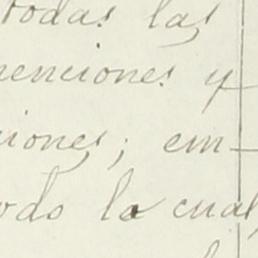 todas las
venciones y
ciones; em-
odo la cual,